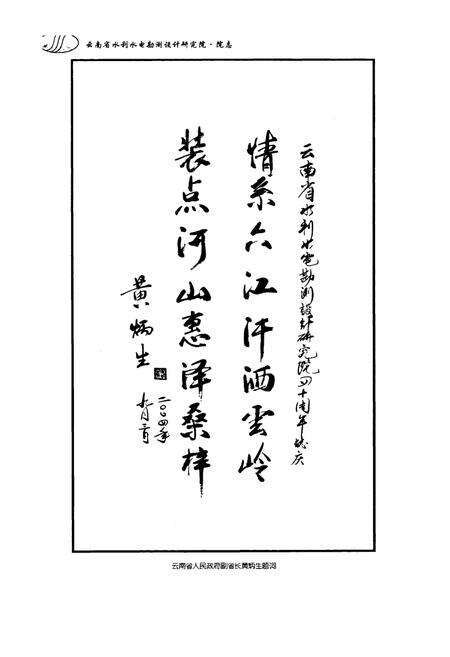 云南省水利水电勘测设计研究院·院志
云南省水利水电勘测設計研究院四十周年誌庆
情系六江汗洒雲岭
装点河山惠泽桑梓
黄炳生
二〇〇四年
九月二日
云南省人民政府副省长黄炳生题词